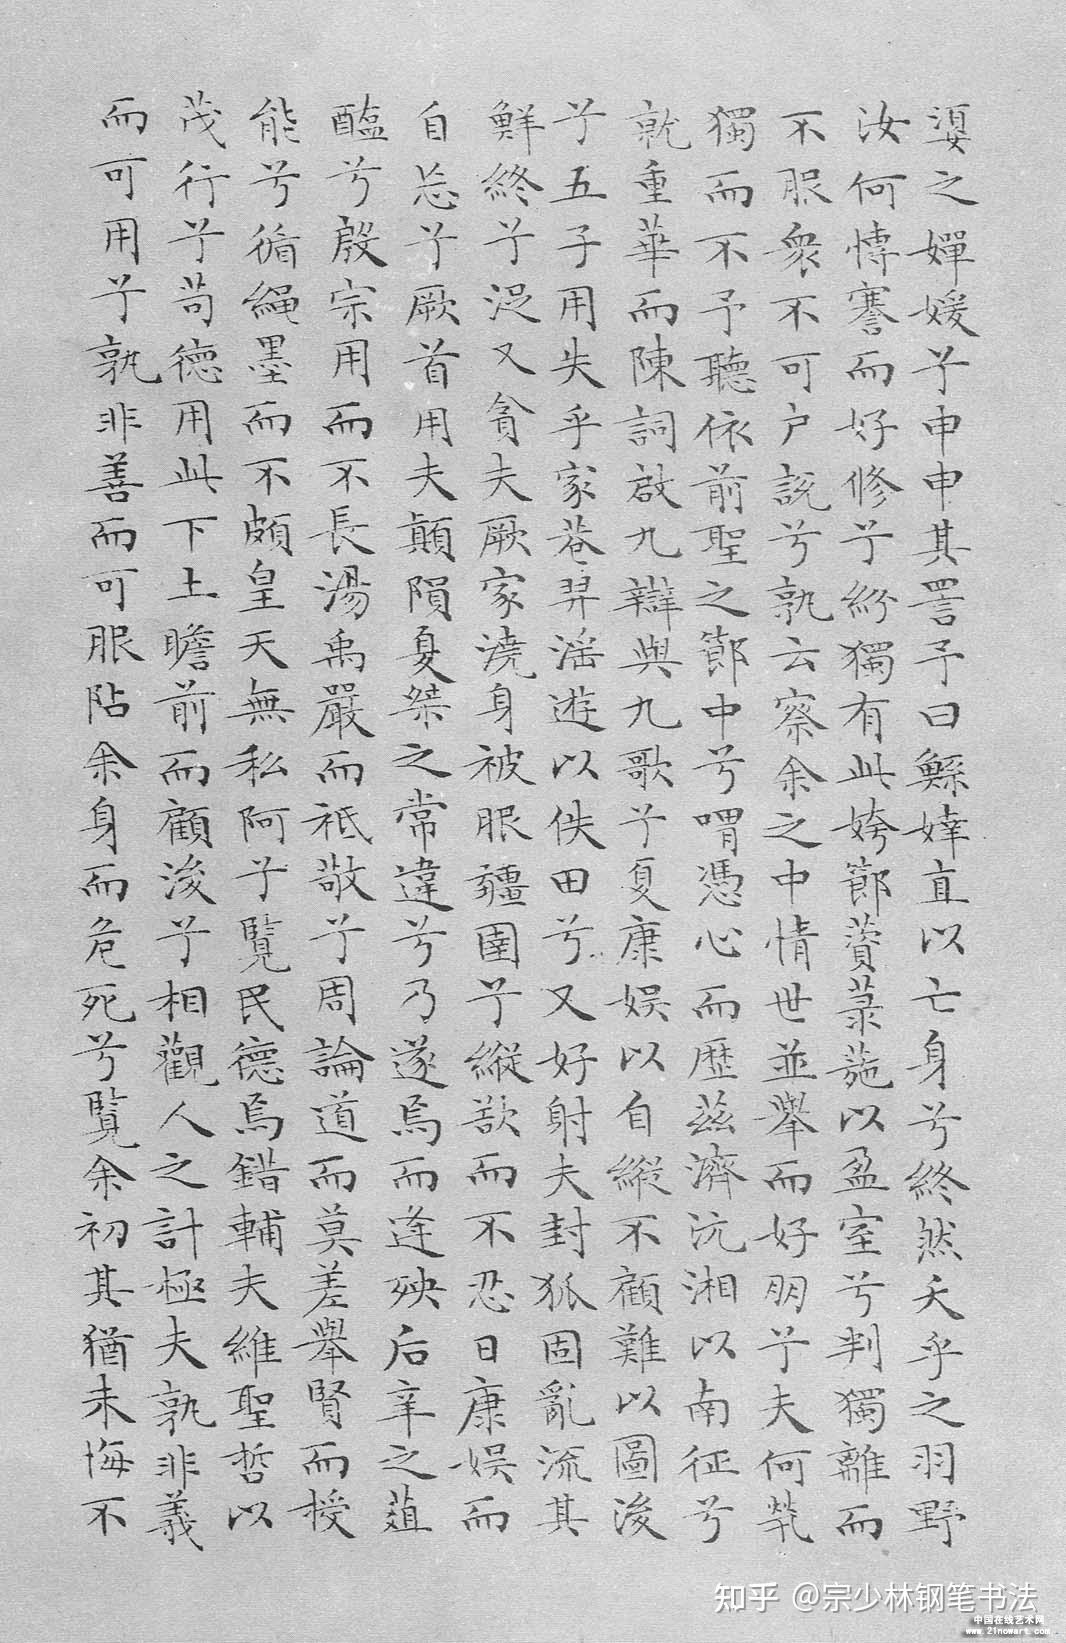 媭之嬋媛兮申申其詈予曰鯀婞直以亡身兮終然夭乎之羽野
汝何博謇而好修兮紛獨有此姱節薋菉葹以盈室兮判獨離而
不服衆不可户說兮孰云察余之中情世並舉而好朋兮夫何煢
獨而不予聽依前聖之節中兮喟憑心而歷茲濟沅湘以南征兮
就重華而陳詞啟九辯與九歌兮夏康娱以自縱不顧難以圖後
兮五子用失乎家巷羿淫遊以佚田兮又好射夫封狐固亂流其
鮮終兮浞又貪夫厥家澆身被服彊圉兮縱欲而不忍日康娱而
自忘兮厥首用夫顛隕夏桀之常違兮乃遂焉而逢殃后辛之菹
醢兮殷宗用而不長湯禹嚴而祗敬兮周論道而莫差舉賢而授
能兮循繩墨而不頗皇天無私阿兮覽民德焉錯輔夫維聖哲以
茂行兮苟德用此下土瞻前而顧後兮相觀人之計極夫孰非義
而可用兮孰非善而可服阽余身而危死兮覽余初其猶未悔不
知乎 @宗少林钢笔书法
中国在线艺术网
www.21nowart.com